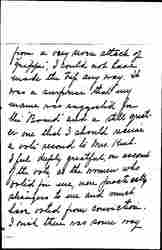 from a very severe attack of
"grippe", I could not have
made the trip any way. It
was a surprise that my
name was suggested for
the Board and a still great-
er one that I should receive
a vote second to Mrs.
I feel deeply grateful, on account
of the vote, as the women who
voted for me, were practically
strangers to me and must
have voted from conviction.
I wish there was some way